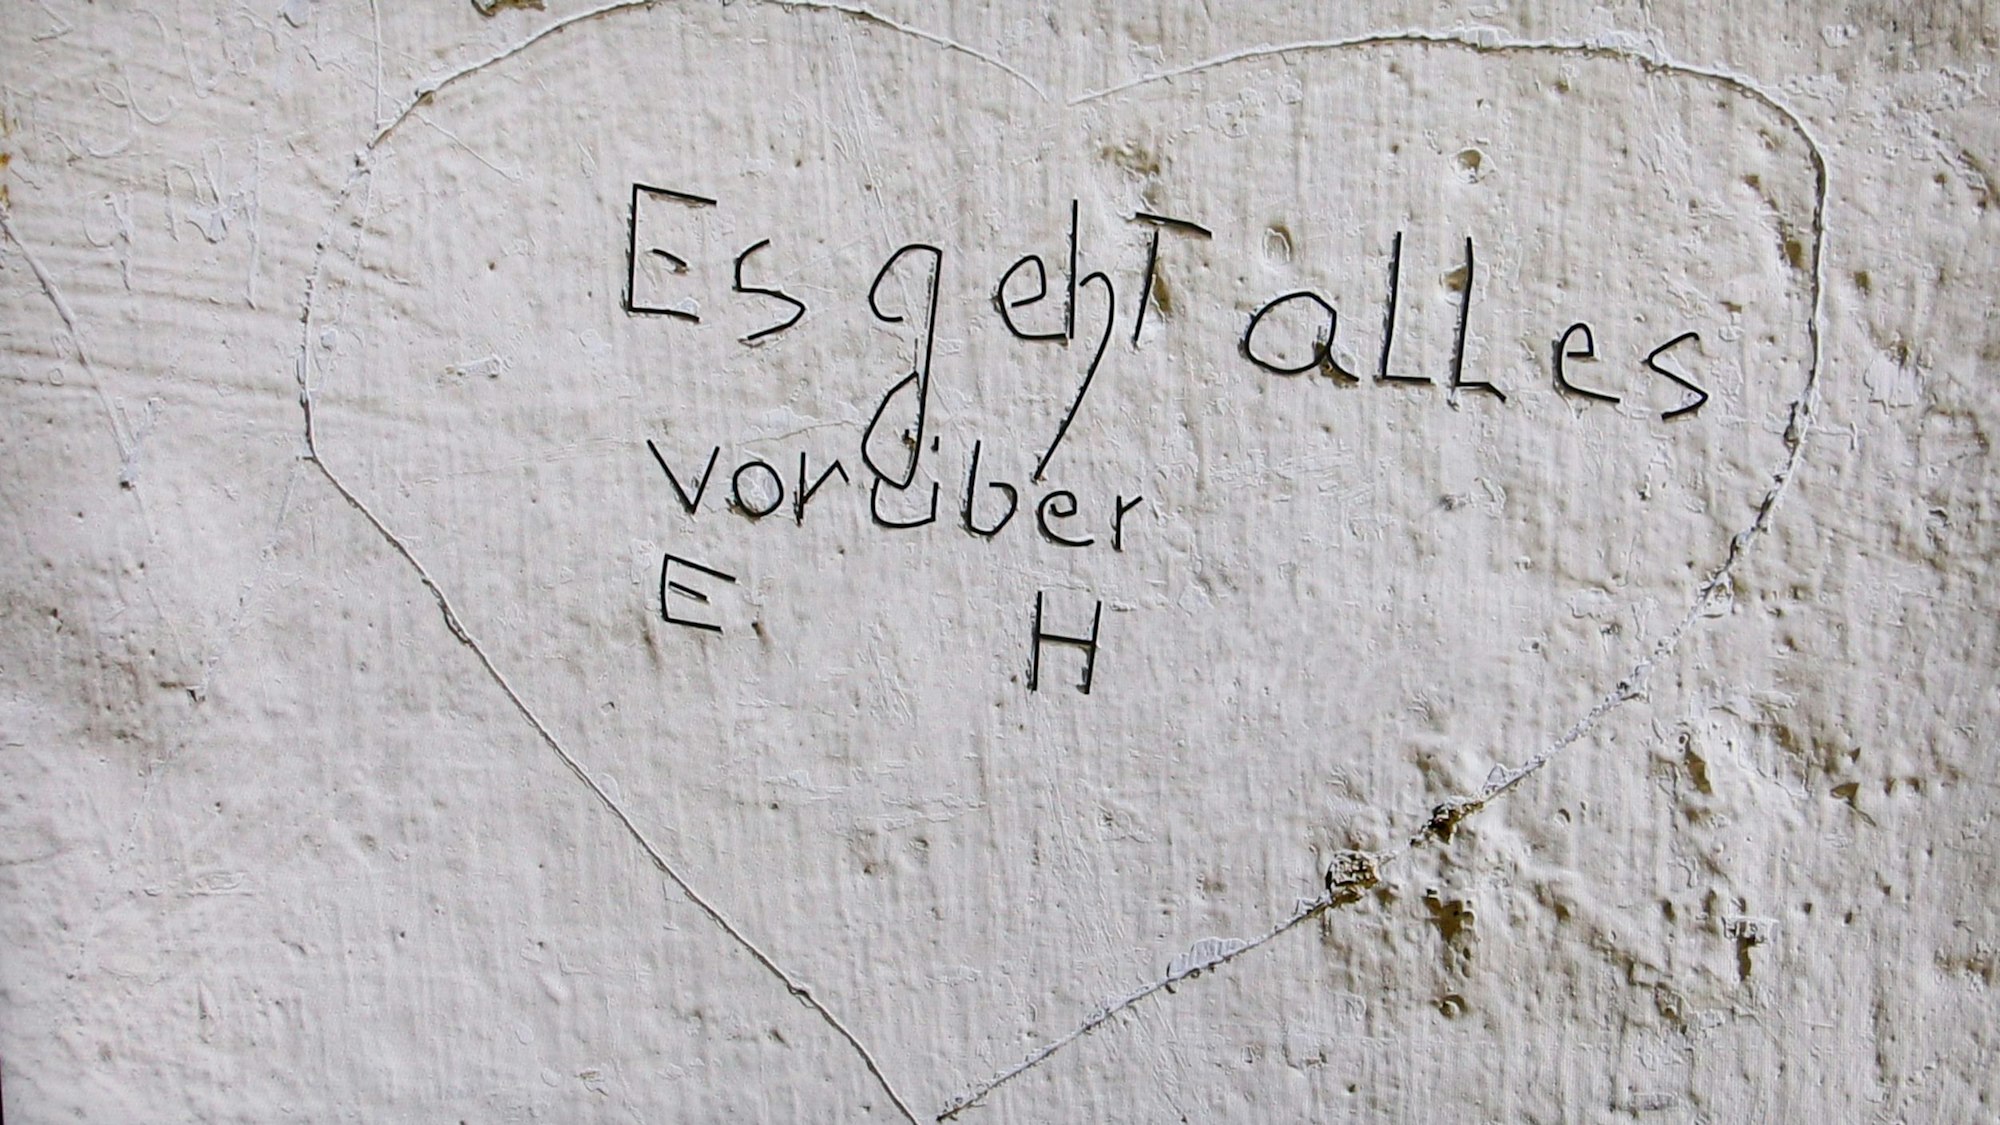 Es gehT alles
vorüber
E H